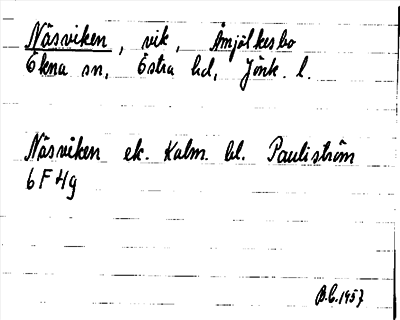 Näsviken, vik, Åmjölkesbo
Ökna sn, Östra hd, Jönk. l.
Näsviken ek. Kalm. bl. Pauliström
6 F 4g
B.C. 1957